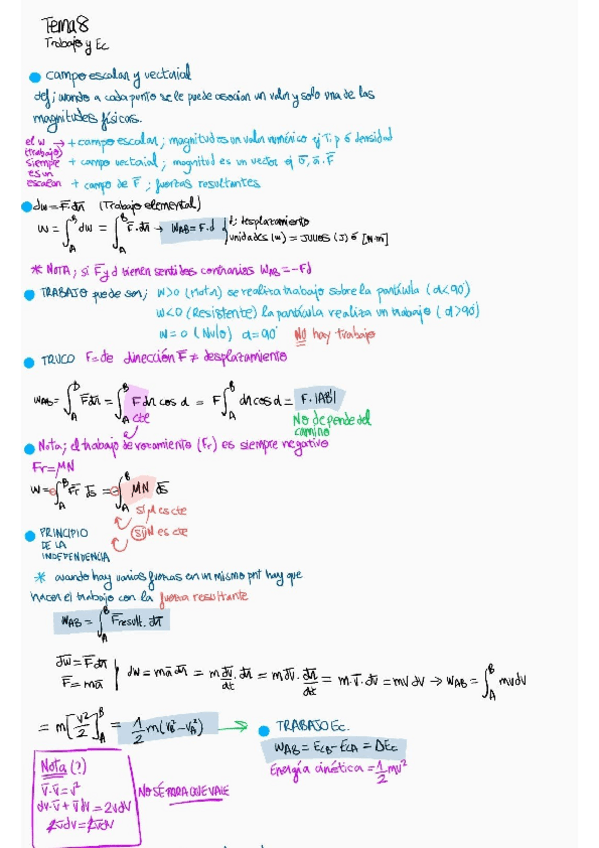 Tema 8
Trabajo y Ec
campo escalar y vectorial
def; cuando a cada punto se le puede asociar un valor y solo una de las
magnitudes físicas.
el w → + campo escalar; magnitud es un valor numérico ej T; p ó densidad
(trabajo)
siempre + campo vectorial; magnitud es un vector ej v̄, ā, F̄
es un
escalar + campo de F̄; fuerzas resultantes
dw = F̄·dr̄ (Trabajo elemental)
w = ∫_A^B dw = ∫_A^B F̄·dr̄ → W_AB = F·d
d; desplazamiento
unidades (w) = Julios (J) ó [N·m]
* NOTA; si F̄ y d tienen sentidos contrarios W_AB = -Fd
TRABAJO puede ser; W>0 (Motor) se realiza trabajo sobre la partícula (α<90°)
W<0 (Resistente) la partícula realiza un trabajo (α>90°)
W=0 (Nulo) α=90° NO hay trabajo
TRUCO F=de dirección F̄ ≠ desplazamiento
W_AB = ∫_A^B F̄dr̄ = ∫_A^B Fdr cos α = F∫_A^B dr cos α = F·|AB|
cte
No depende del
camino
Nota; el trabajo de rozamiento (Fr) es siempre negativo
Fr = MN
W = -∫_A^B F̄r d̄s = -∫_A^B MN d̄s
si M es cte
si N es cte
PRINCIPIO
DE LA
INDEPENDENCIA
* cuando hay varias fuerzas en un mismo pnt hay que
hacer el trabajo con la fuerza resultante
W_AB = ∫_A^B F̄result. dr̄
dw = F̄dr̄
F̄ = mā
dw = mā dr̄ = m dv̄/dt · dr̄ = m dv̄ · dr̄/dt = m·v̄·dv̄ = mVdV → W_AB = ∫_A^B mvdv
= m[v²/2]_A^B = 1/2 m(v_B² - v_A²) →
TRABAJO Ec.
W_AB = Ec_B - Ec_A = ΔEc
Energía cinética = 1/2 mv²
Nota (?)
v̄·v̄ = v²
dv·v̄ + v̄dv = 2vdv
2v̄dv = 2vdv
NO SÉ PARA QUE VALE